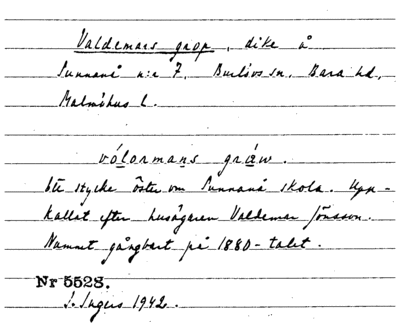 Valdemars grop, dike å
Sunnanå n:r 7, Burlövs sn, Bara hd,
Malmöhus l.
vólormans gráw.
Ett stycke öster om Sunnanå skola. Upp-
kallat efter husägaren Valdemar Jönsson.
Namnet gångbart på 1880-talet.
Nr 5528.
I. Ingers 1942.